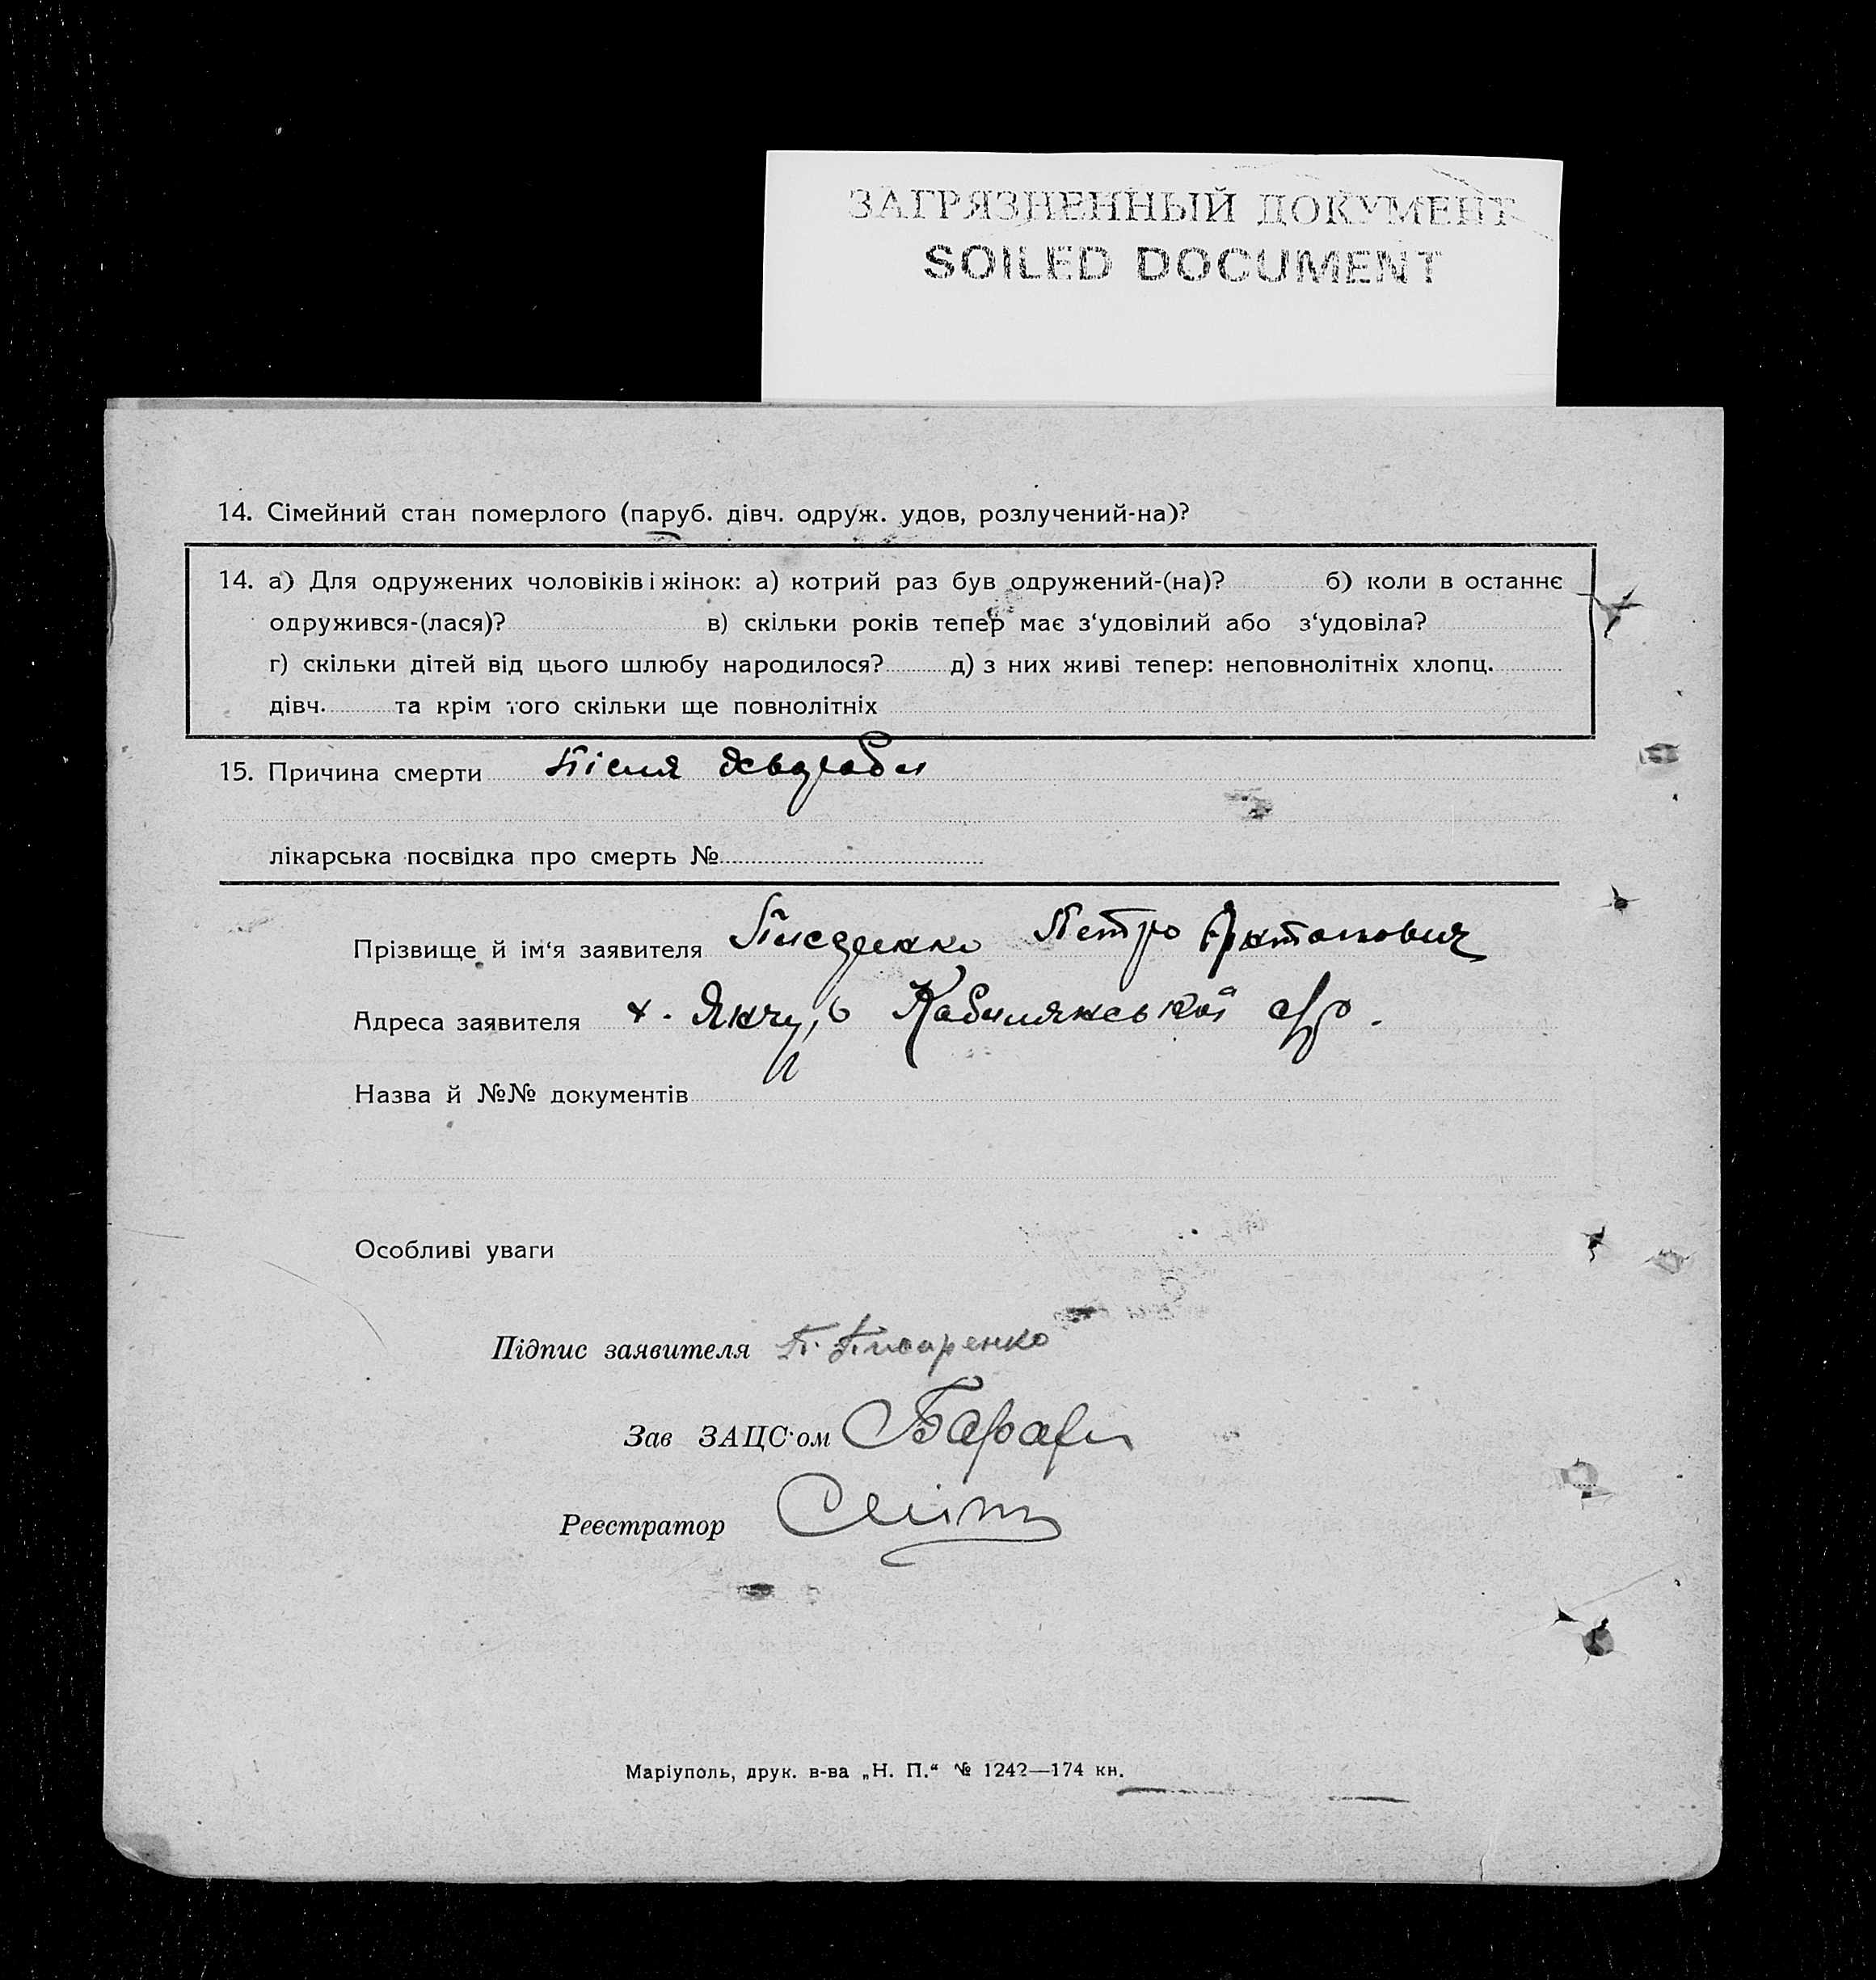 ЗАГРЯЗНЕННЫЙ ДОКУМЕНТ
SOILED DOCUMENT
14. Сімейний стан померлого (паруб. дівч. одруж. удов, розлучений-на)?
14. а) Для одружених чоловіків і жінок: а) котрий раз був одружений-(на)? б) коли в останнє
одружився-(лася)? в) скільки років тепер має з‘удовілий або з‘удовіла?
г) скільки дітей від цього шлюбу народилося? д) з них живі тепер: неповнолітніх хлопц.
дівч. та крім того скільки ще повнолітніх
15. Причина смерти Після хвороби
лікарська посвідка про смерть №
Прізвище й ім‘я заявителя Писаренко Петро Антонович
Адреса заявителя х. Кобилянської с/р.
Назва й №№ документів
Особливі уваги
Підпис заявителя П. Писаренко
Зав ЗАЦС‘ом
Реєстратор
Маріуполь, друк. в-ва „Н. П.“ № 1242—174 кн.